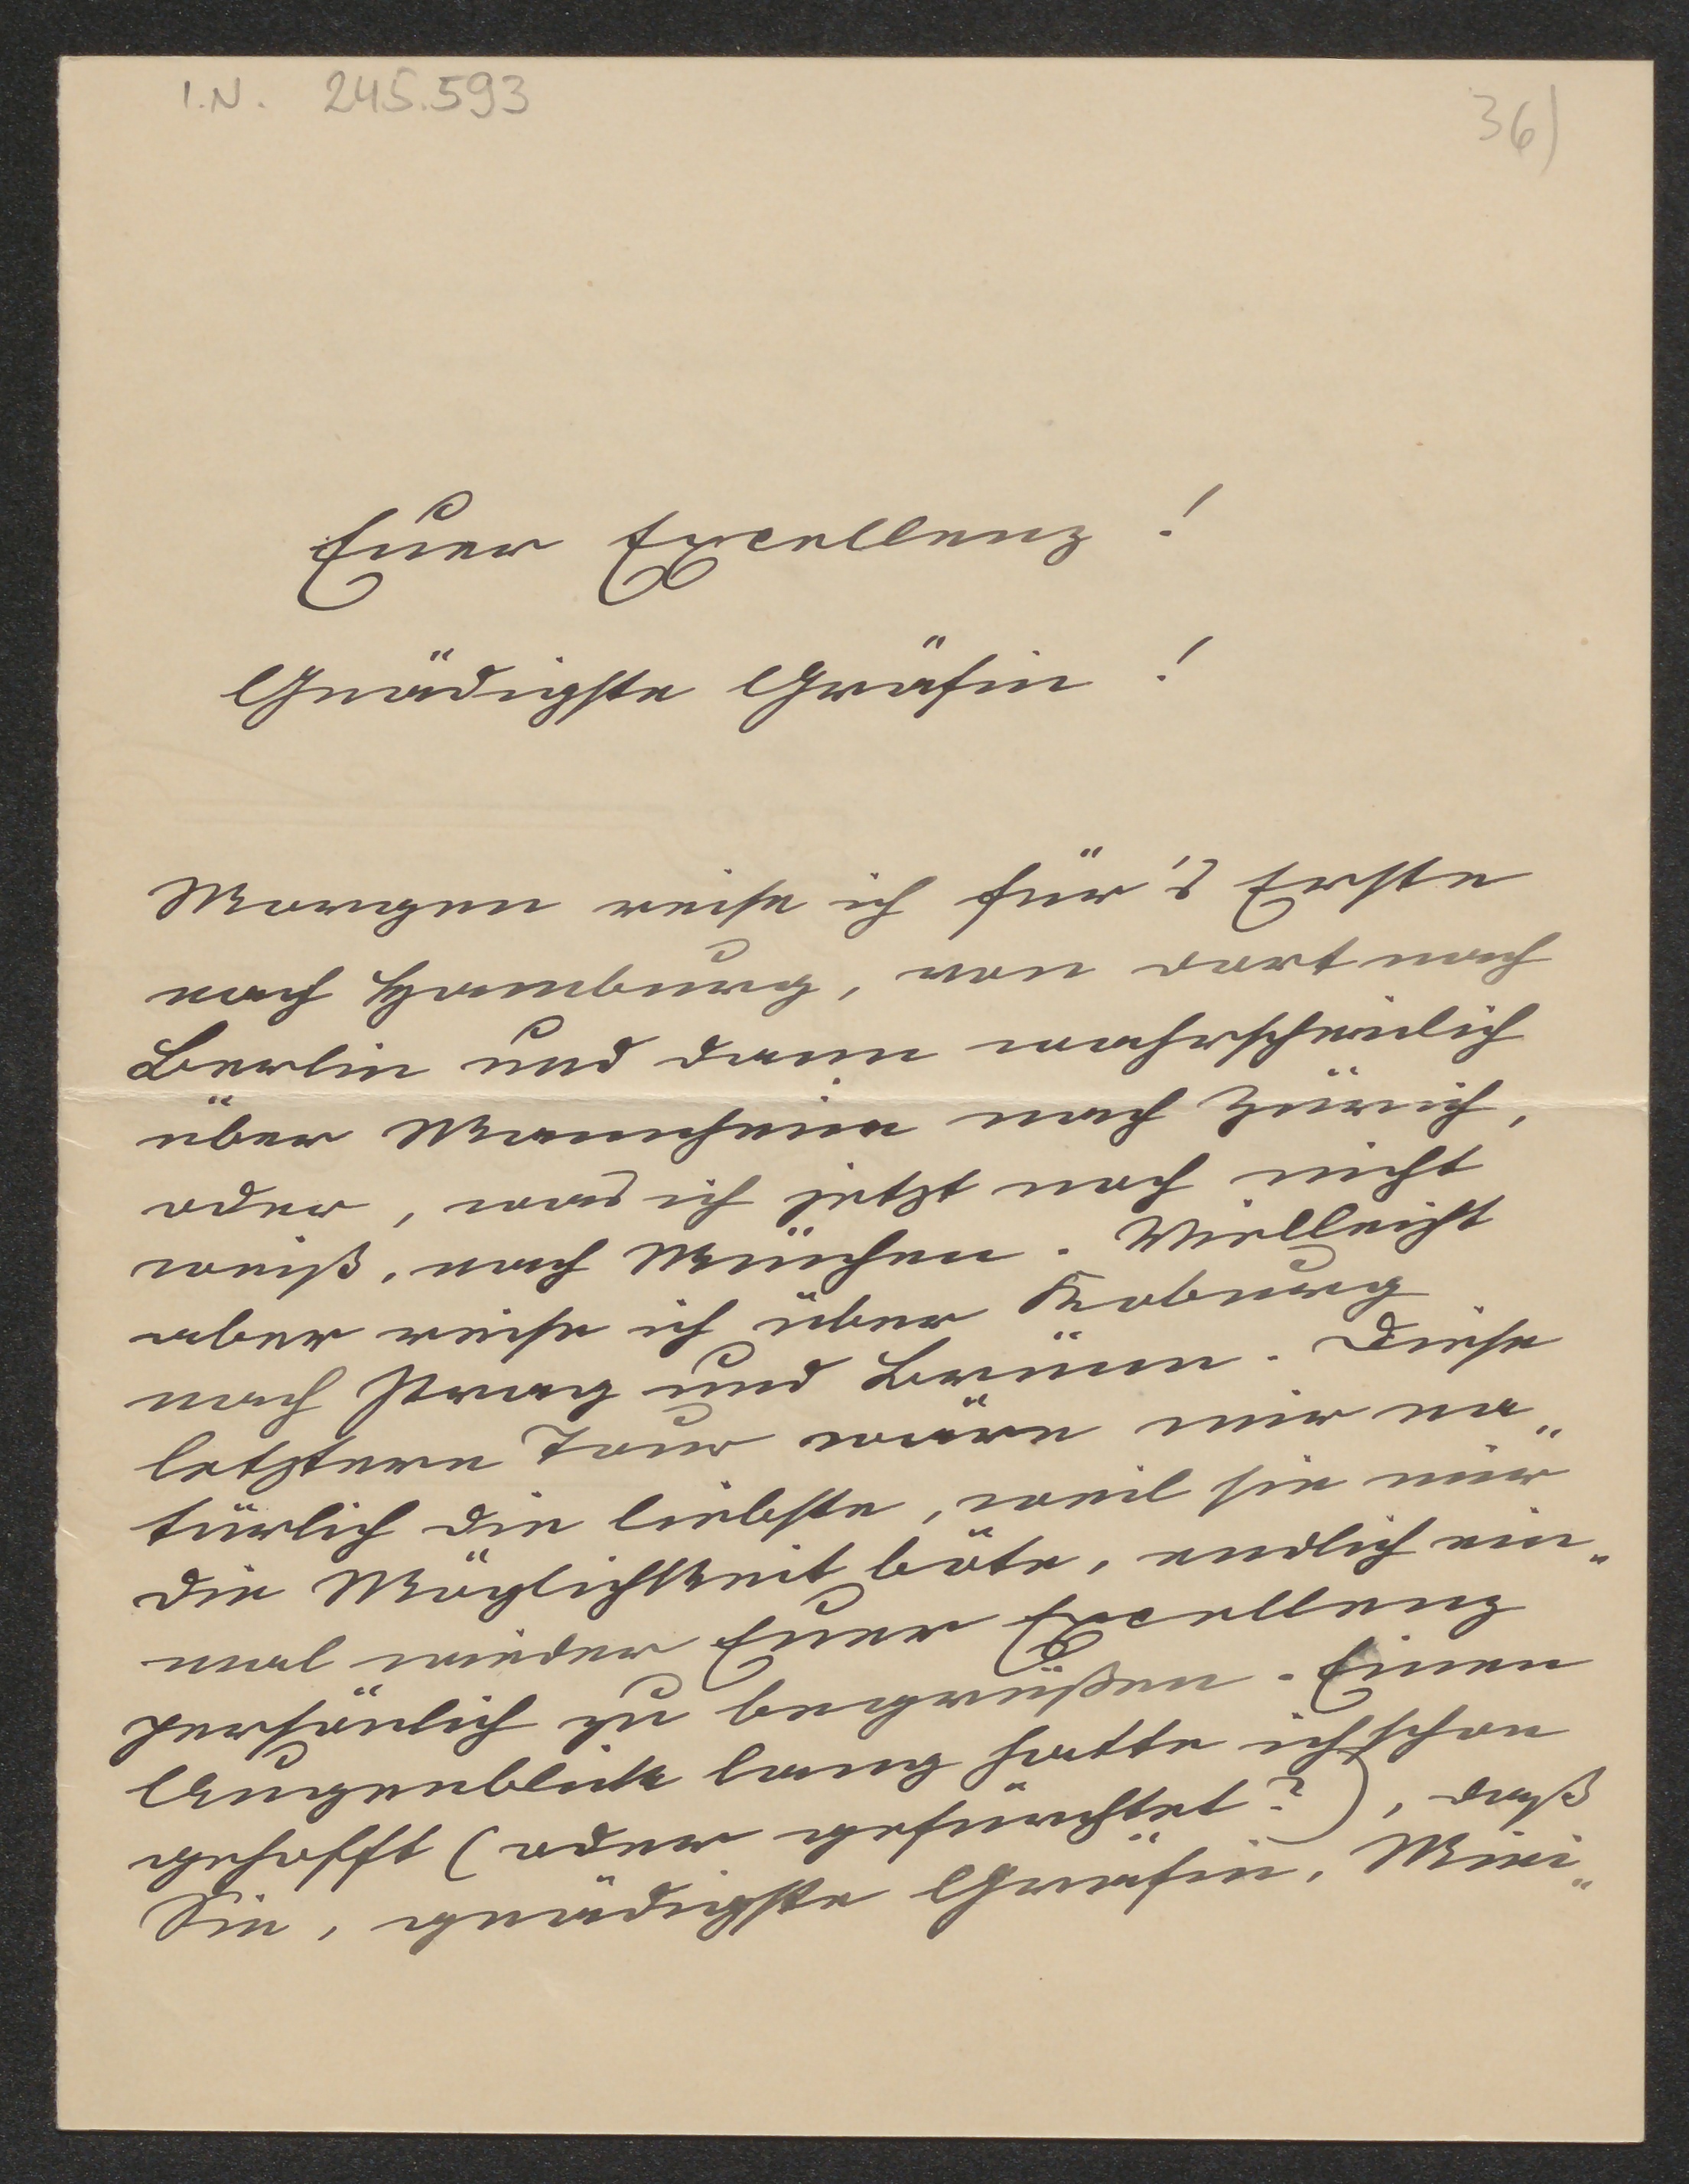 I.N. 245.593
36)
Euer Excellenz!
Gnädigste Gräfin!
Morgen reise ich für's Erste
nach Hamburg, von dort nach
Berlin und dann wahrscheinlich
über Mannheim nach Zürich,
oder, was ich jetzt noch nicht
weiß, nach München. Vielleicht
aber reise ich über Koburg
nach Prag und Brünn. Diese
letztere Tour wäre mir na„
türlich die liebste, weil sie mir
die Möglichkeit böte, endlich ein„
mal wieder Euer Excellenz
persönlich zu begrüßen. Einen
Augenblick lang hatte ich schon
gehofft (oder gefürchtet?), daß
Sie, gnädigste Gräfin, Mini„